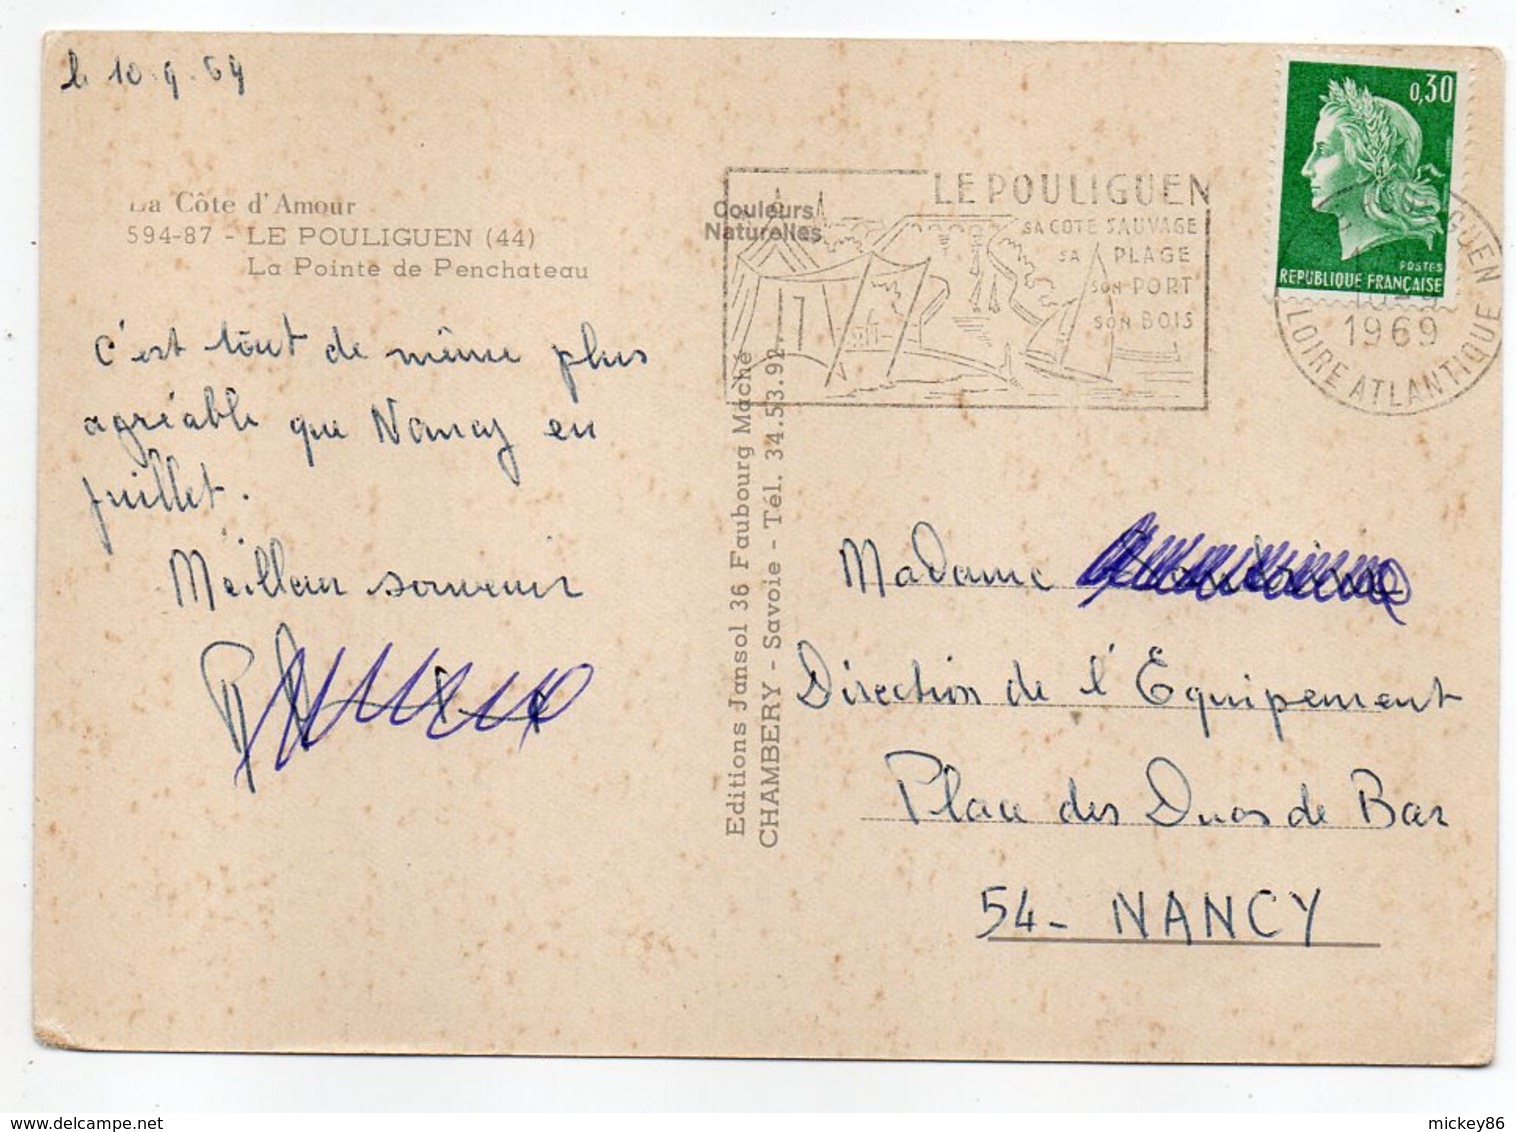 le 10.9.69
La Côte d'Amour
594-87 - LE POULIGUEN (44)
La Pointe de Penchateau
C'est tout de même plus
agréable que Nancy en
juillet.
Meilleur souvenir
Couleurs
Naturelles
Editions Jansol 36 Faubourg Maché
CHAMBERY - Savoie - Tél. 34.53.92
LE POULIGUEN
SA COTE SAUVAGE
SA PLAGE
SON PORT
SON BOIS
0,30
POSTES
REPUBLIQUE FRANÇAISE
1969
LOIRE ATLANTIQUE
Madame
Direction de l'Equipement
Place des Ducs de Bar
54- NANCY
mickey86